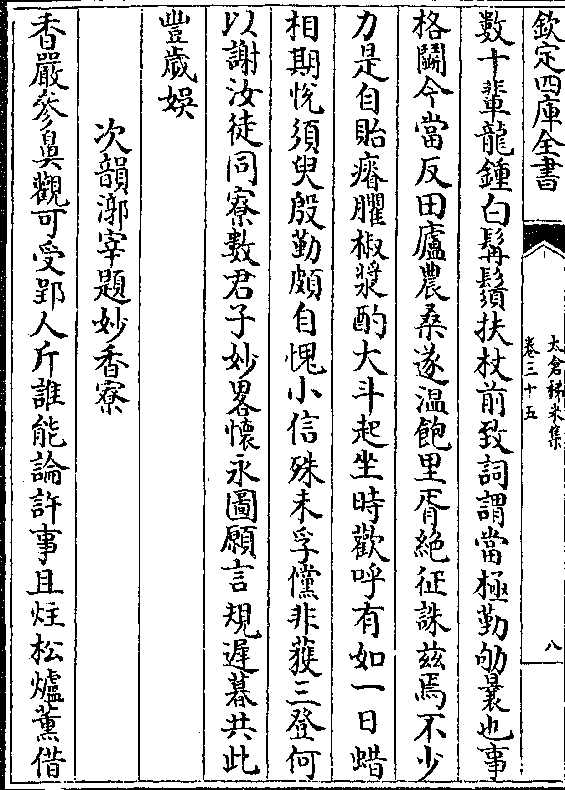 欽定四庫全書
太倉稊米集
卷三十五
八
數十輩龍鍾白髯鬚扶杖前致詞謂當極勤劬曩也事
格鬭今當反田廬農桑遂温飽里胥絶征誅兹焉不少
力是自貽瘠臞椒漿酌大斗起坐時歡呼有如一日蜡
相期恱須臾殷勤頗自愧小信殊未孚儻非蒦三登何
以謝汝徒同寮數君子妙畧懐永圖願言規遲暮共此
豐歲娱
次韻漷宰題妙香寮
香嚴參鼻觀可受郢人斤誰能論許事且炷松爐薰借